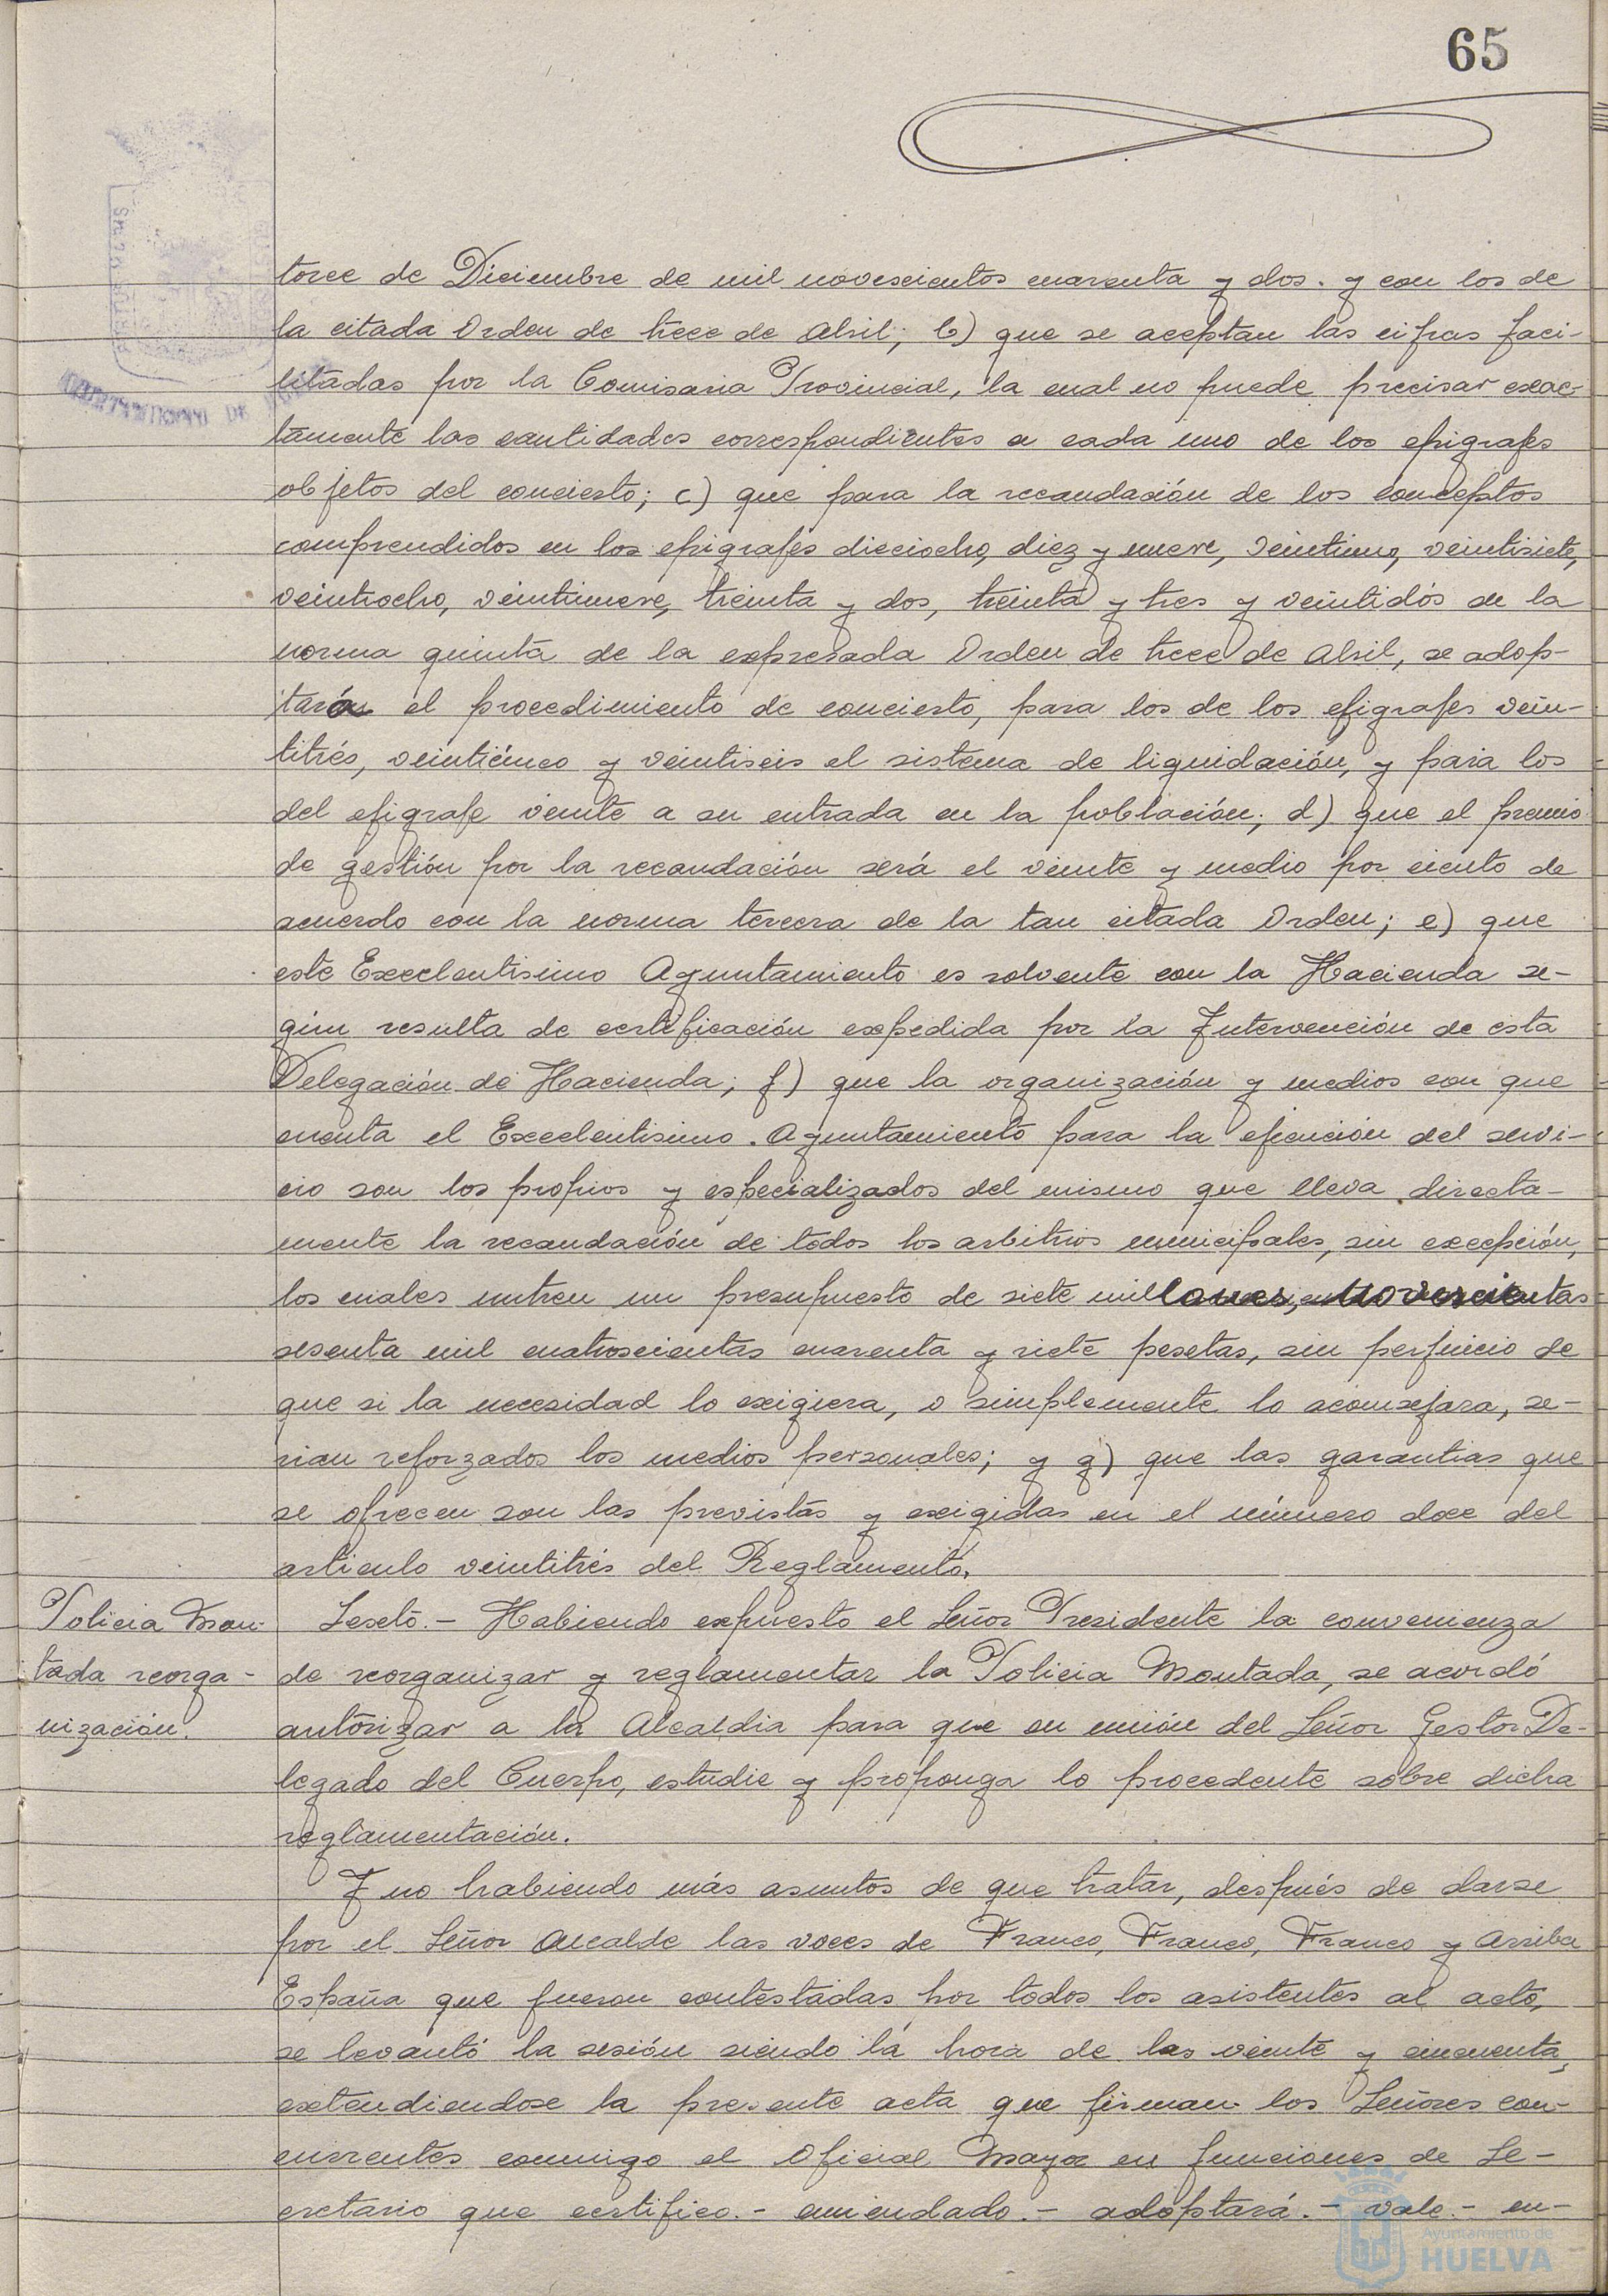 65
torce de Diciembre de mil novescientos cuarenta y dos. y con los de
la citada Orden de trece de Abril; b) que se aceptan las cifras faci-
litadas por la Comisaria Provincial, la cual no puede precisar exac-
tamente las cantidades correspondientes a cada uno de los epigrafes
objetos del concierto; c) que para la recaudación de los conceptos
comprendidos en los epigrafes dieciocho, diez y nueve, veintiuno, veintisiete,
veintiocho, veintinueve, treinta y dos, treinta y tres y veintidós de la
norma quinta de la expresada Orden de trece de Abril, se adop-
tará el procedimiento de concierto, para los de los epigrafes vein-
titrés, veinticinco y veintiseis el sistema de liquidación, y para los
del epigrafe veinte a su entrada en la población; d) que el premio
de gestión por la recaudación será el veinte y medio por ciento de
acuerdo con la norma tercera de la tan citada Orden; e) que
este Excelentisimo Ayuntamiento es solvente con la Hacienda se-
gún resulta de certificación expedida por la Intervención de esta
Delegación de Hacienda; f) que la organización y medios con que
cuenta el Excelentisimo Ayuntamiento para la ejecución del servi-
cio son los propios y especializados del mismo que lleva directa-
mente la recaudación de todos los arbitrios municipales, sin excepción,
los cuales nutren un presupuesto de siete millones, novescientas
sesenta mil cuatroscientas cuarenta y siete pesetas, sin perjuicio de
que si la necesidad lo exigiera, o simplemente lo aconsejara, se-
rian reforzados los medios personales; y g) que las garantias que
se ofrecen son las previstas y exigidas en el número doce del
articulo veintitrés del Reglamento.
Policia Mon-
tada reorga-
nización.
Sexto.- Habiendo expuesto el Señor Presidente la convenienza
de reorganizar y reglamentar la Policia Montada, se acordó
autorizar a la Alcaldia para que en unión del Señor Gestor De-
legado del Cuerpo, estudie y proponga lo procedente sobre dicha
reglamentación.
Y no habiendo más asuntos de que tratar, después de darse
por el Señor Alcalde las voces de Franco, Franco, Franco y Arriba
España que fueron contestadas por todos los asistentes al acto,
se levantó la sesión siendo la hora de las veinte y cincuenta,
extendiendose la presente acta que firman los Señores con-
currentes conmigo el Oficial Mayor en funciones de Se-
cretario que certifico.- enmendado.- adoptará.- vale.- en-
Ayuntamiento de
HUELVA